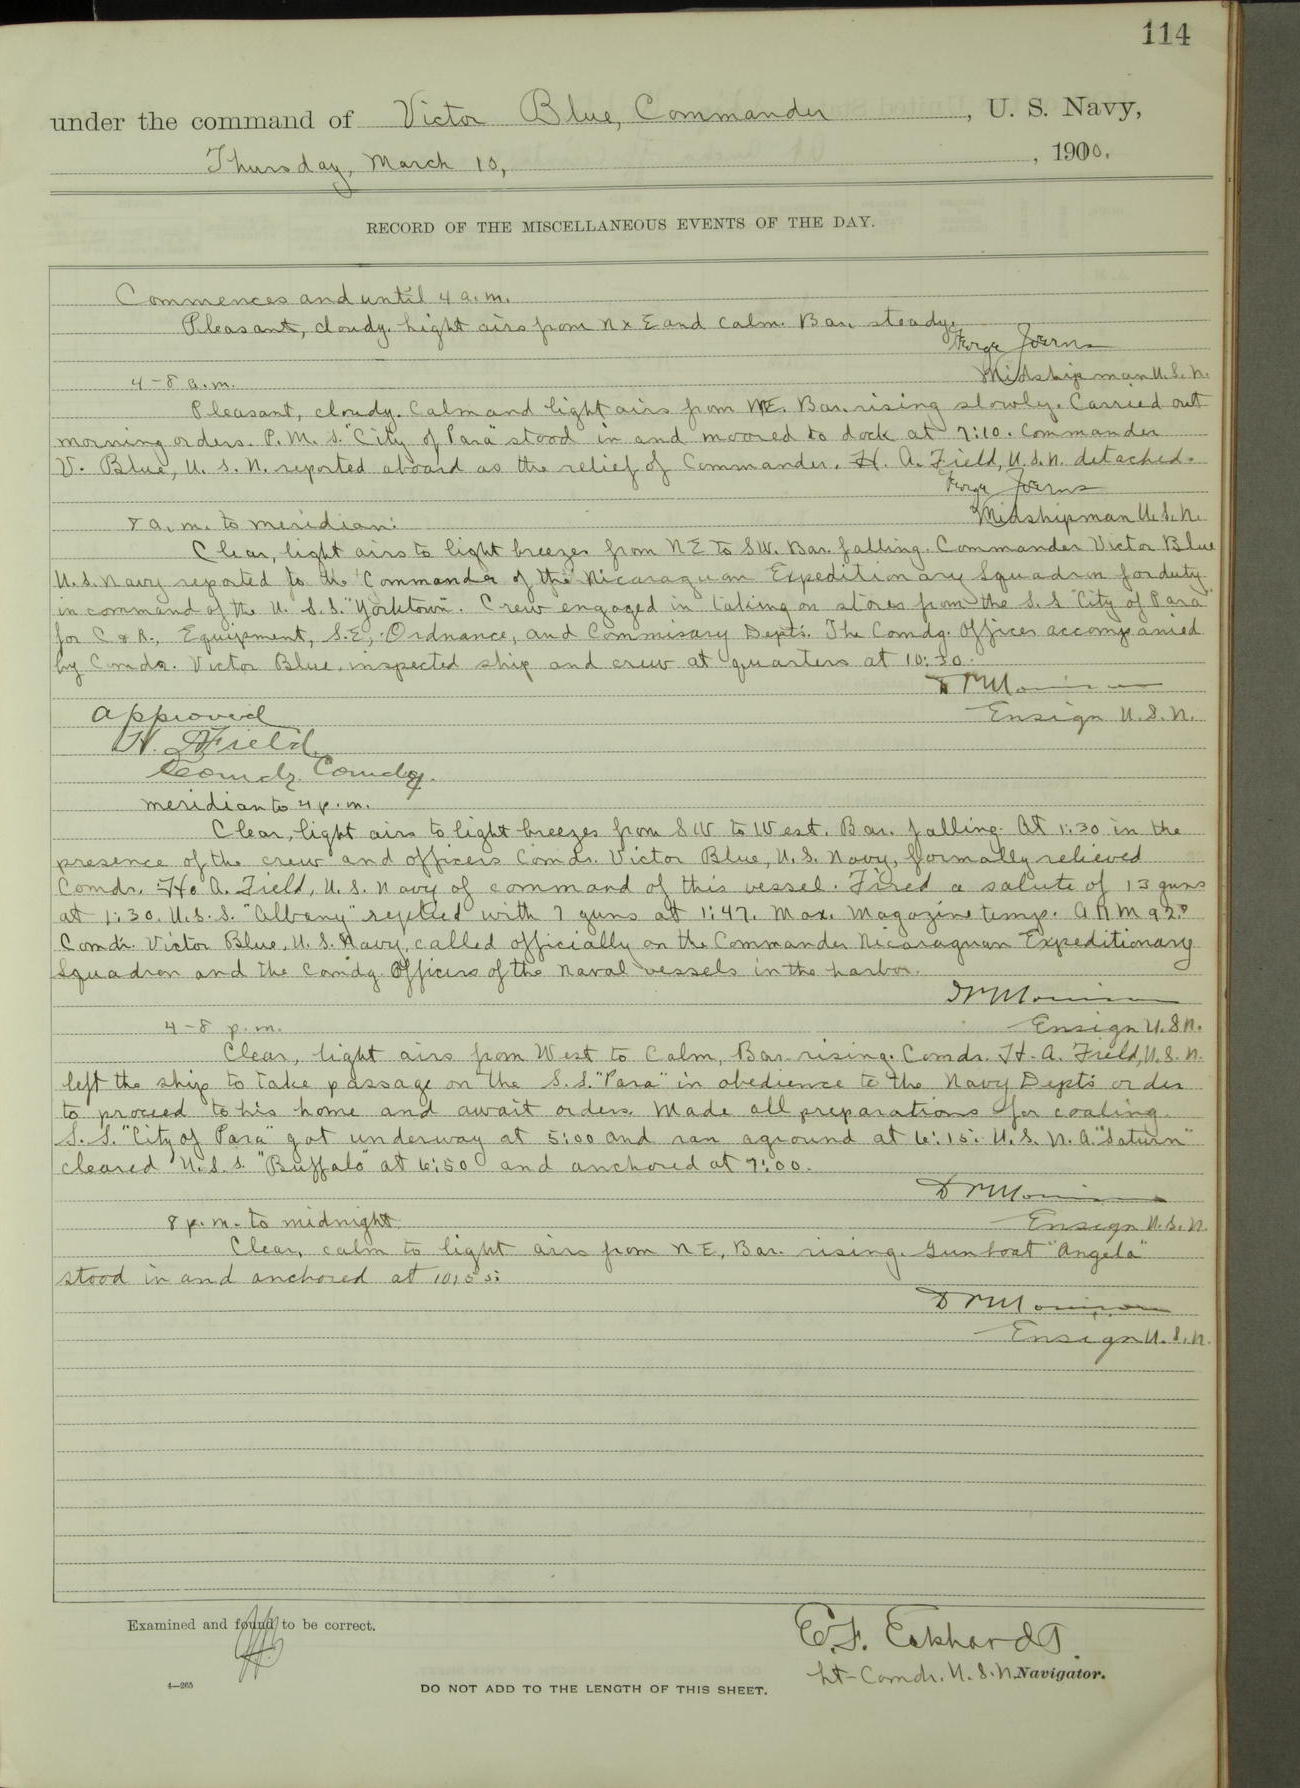 114
under the command of Victor Blue, Commander, U. S. Navy,
Thursday, March 10, , 1910.
RECORD OF THE MISCELLANEOUS EVENTS OF THE DAY.
Commences and until 4 a.m.
Pleasant, cloudy. Light airs from N x E and calm. Bar. steady.
George Joerns
Midshipman U.S.N.
4-8 a.m.
Pleasant, cloudy. Calm and light airs from NE. Bar. rising slowly. Carried out
morning orders. P. M. S. "City of Para" stood in and moored to dock at 7:10. Commander
V. Blue, U. S. N. reported aboard as the relief of Commander. H. A. Field, U.S.N. detached.
George Joerns
Midshipman U.S.N.
8 a.m. to meridian:
Clear, light airs to light breezes from NE to SW. Bar. falling. Commander Victor Blue
U.S. Navy reported to the Commander of the Nicaraguan Expeditionary Squadron for duty
in command of the U. S. S. "Yorktown". Crew engaged in taking on stores from the S. S "City of Para"
for C & R., Equipment, S.E., Ordnance, and Commisary Depts. The Comdg. Officer accompanied
by Comdr. Victor Blue, inspected ship and crew at quarters at 10:30.
Ensign U.S.N.
Approved
H. A Field
Comdr. Comdg.
meridian to 4 p.m.
Clear, light airs to light breezes from SW to West. Bar. falling. At 1:30 in the
presence of the crew and officers Comdr. Victor Blue, U.S. Navy, formally relieved
Comdr. H. A. Field, U.S. Navy of command of this vessel. Fired a salute of 13 guns
at 1:30. U.S.S. "Albany" replied with 7 guns at 1:47. Max. Magazine temp. A M M 92°
Comdr. Victor Blue, U.S. Navy, called officially on the Commander Nicaraguan Expeditionary
Squadron and the Comdg. Officers of the Naval vessels in the harbor.
Ensign U.S.N.
4-8 p.m.
Clear, light airs from West to Calm, Bar. rising. Comdr. H. A. Field, U.S.N.
left the ship to take passage on the S.S. "Para" in obedience to the Navy Dept's order
to proceed to his home and await orders. Made all preparations for coaling.
S.S. "City of Para" got underway at 5:00 and ran aground at 6:15. U.S.N.A. "Saturn"
cleared U.S.S. "Buffalo" at 6:50 and anchored at 7:00.
Ensign U.S.N.
8 p.m. to midnight.
Clear, calm to light airs from NE, Bar. rising. Gunboat "Angela"
stood in and anchored at 10:55.
Ensign U.S.N.
Examined and found to be correct.
E. F. Eckhardt.
Lt-Comdr. U.S.N. Navigator.
4—265
DO NOT ADD TO THE LENGTH OF THIS SHEET.